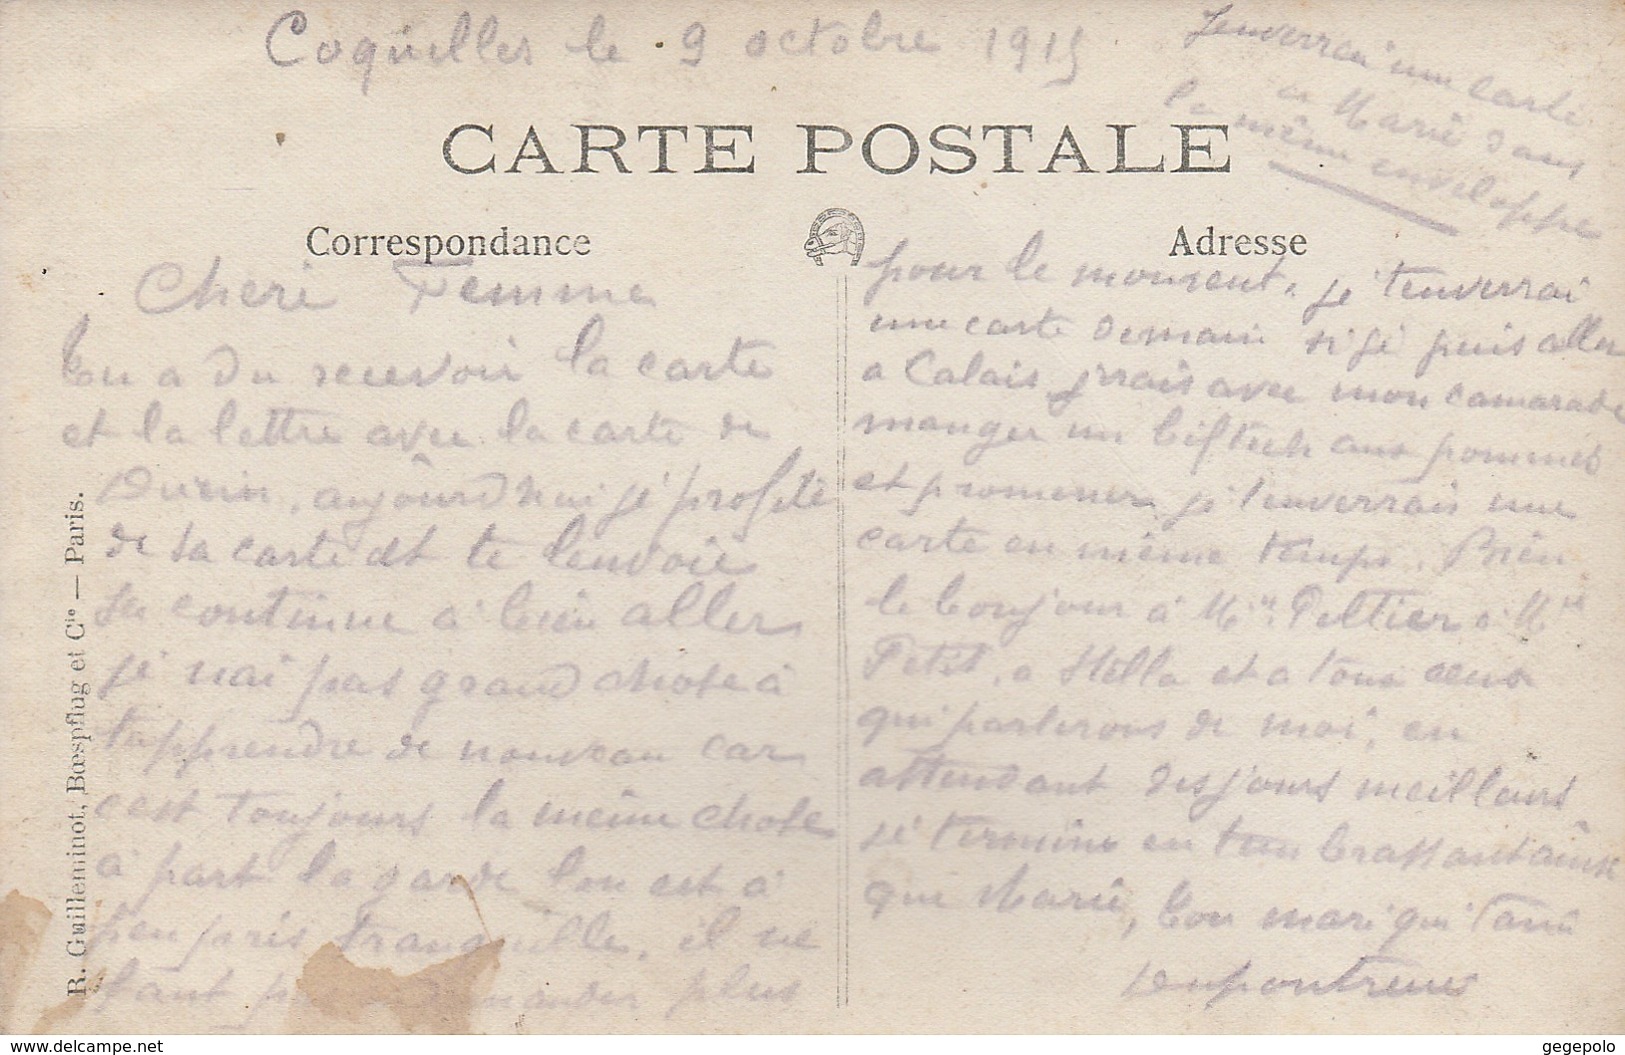 Coquelles le 9 octobre 1915
J'enverrai une carte
a Marie dans
la même enveloppe
CARTE POSTALE
Correspondance
Adresse
Cheri Femme
tu a du recevoir la carte
et la lettre avec la carte de
aujourd'hui je profite
de la carte et te l'envoie
continue a bien aller
je n'ai pas grand chose à
t'apprendre de nouveau car
c'est toujours la même chose
a part la garde l'on est à
peu près tranquille, il ne
faut demander plus
pour le moment, je t'enverrai
une carte demain si je puis aller
a Calais, j'irais avec mon camarade
manger un bifteck aus pommes
et promener je t'enverrais une
carte en même temps. Bien
le bonjour à Mme Peltier à Mme
Petit, a Stella et a tous ceux
qui parlerons de moi, en
attendant des jours meilleurs
je termine en t'embrassant ainsi
que Marie, ton mari qui t'aime
R. Guilleminot, Bœspflug et Cie — Paris.
www.delcampe.net
gegepolo